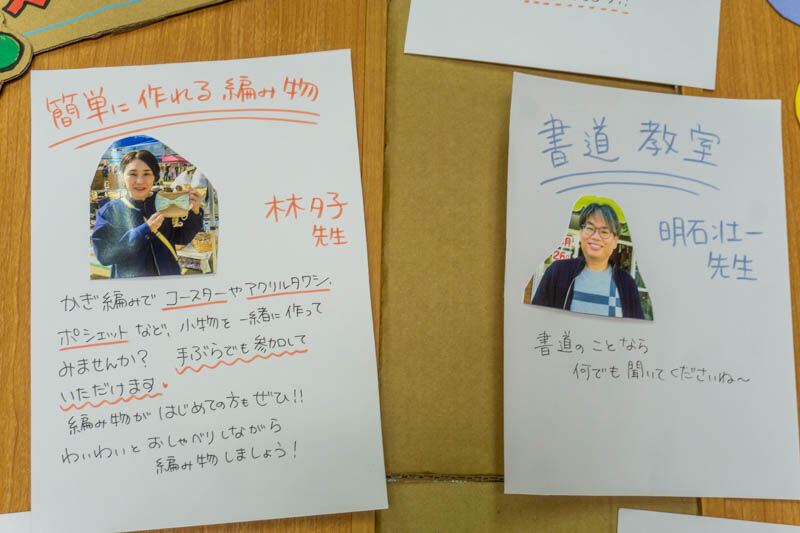 簡単に作れる編み物
林夕子
先生
かぎ編みで コースターや アクリルタワシ、
ポシェット など、小物を 一緒に作って
みませんか？ 手ぶらでも参加して
いただけます
編み物が はじめての方も ぜひ!!
わいわいと おしゃべりしながら
編み物しましょう！
書道 教室
明石壮一
先生
書道のことなら
何でも聞いてくださいね〜